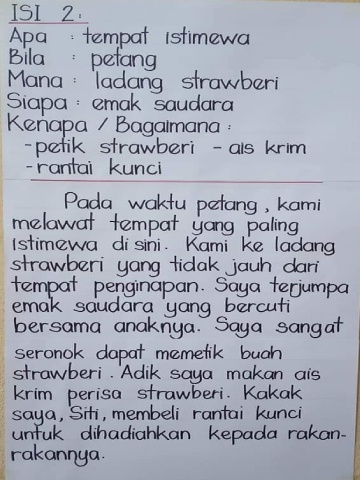 ISI 2:
Apa : tempat istimewa
Bila : petang
Mana : ladang strawberi
Siapa : emak saudara
Kenapa / Bagaimana :
-petik strawberi - ais krim
-rantai kunci
Pada waktu petang, kami
melawat tempat yang paling
istimewa di sini. Kami ke ladang
strawberi yang tidak jauh dari
tempat penginapan. Saya terjumpa
emak saudara yang bercuti
bersama anaknya. Saya sangat
seronok dapat memetik buah
strawberi. Adik saya makan ais
krim perisa strawberi. Kakak
saya, Siti, membeli rantai kunci
untuk dihadiahkan kepada rakan-
rakannya.